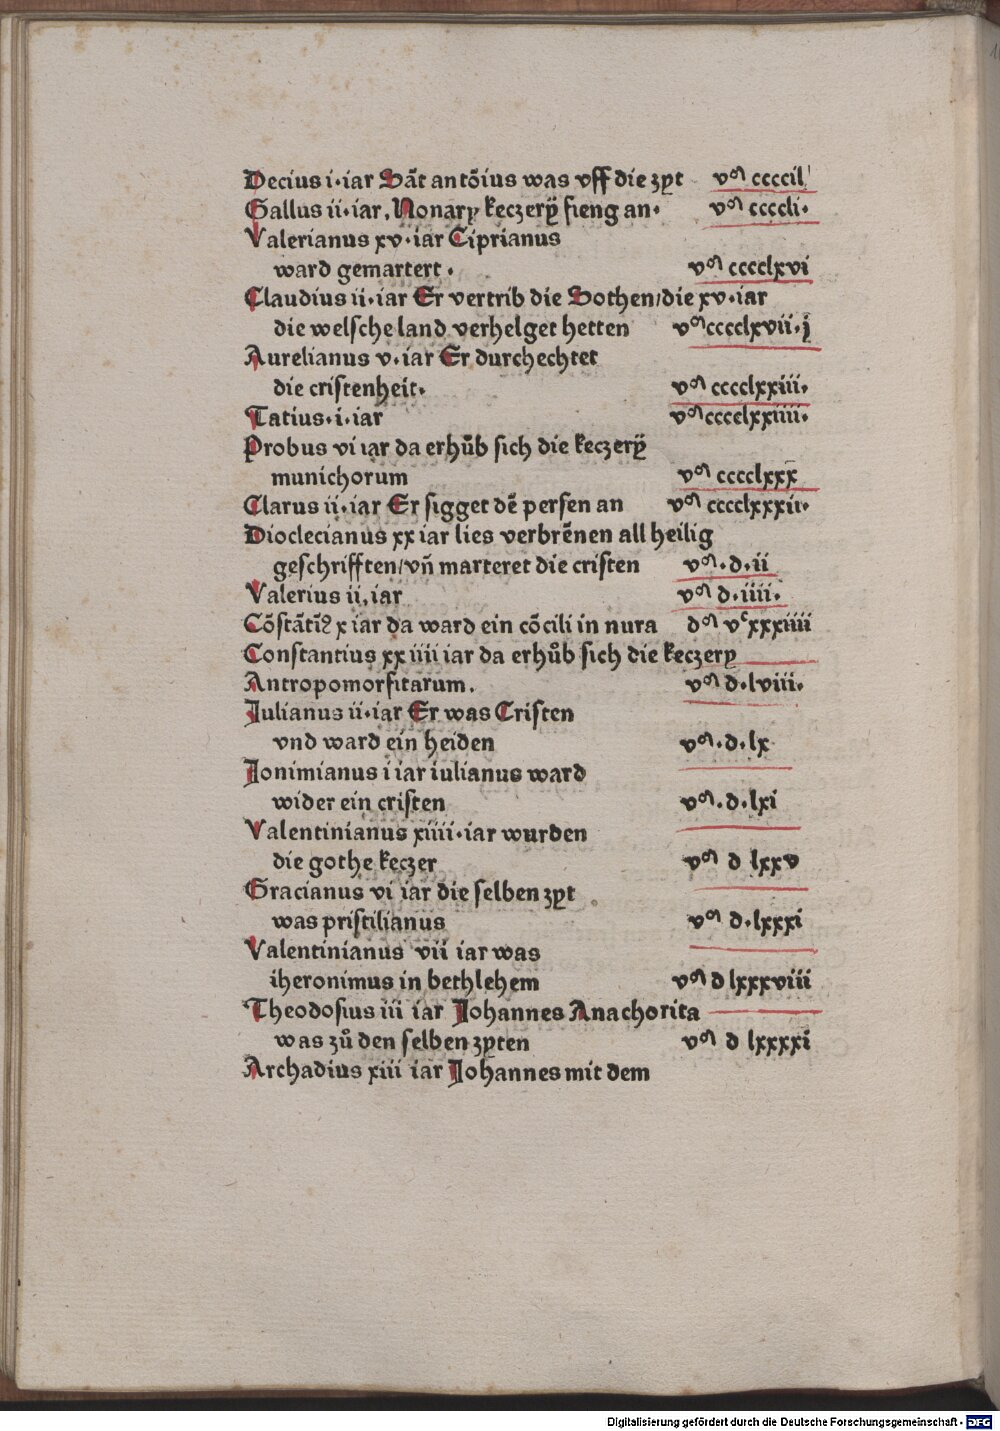 Decius i·iar Sāt antōius was vff die zyt vᵐ ccccil
Gallus ii·iar. Nonary keczerÿ fieng an· vᵐ ccccli·
Valerianus xv·iar Ciprianus
ward gemartert · vᵐ cccclxvi
Claudius ii·iar Er vertrib die Gothen/die xv·iar
die welsche land verhelget hetten vᵐcccclxvii·j
Aurelianus v·iar Er durchechtet
die cristenheit· vᵐ cccclxxiii·
Tatius·i·iar vᵐcccclxxiiii·
Probus vi iar da erhůb sich die keczerÿ
munichorum vᵐ cccclxxx
Clarus ii·iar Er sigget dē persen an vᵐ cccclxxxii·
Dioclecianus xx iar lies verbrēnen all heilig
geschrifften/vn̄ marteret die cristen vᵐ·d·ii
Valerius ii.iar vᵐ d·iiii·
Cōstātiꝰ x iar da ward ein cōcili in nura dᵐ vᶜxxxiiii
Constantius xxiiii iar da erhůb sich die keczery
Antropomorfitarum. vᵐ d·lviii·
Julianus ii·iar Er was Cristen
vnd ward ein heiden vᵐ·d·lx
Jonimianus i iar iulianus ward
wider ein cristen vᵐ·d·lxi
Valentinianus xiiii·iar wurden
die gothe keczer vᵐ d lxxv
Gracianus vi iar die selben zyt
was pristilianus vᵐ d·lxxxi
Valentinianus vii iar was
iheronimus in bethlehem vᵐ d lxxxviii
Theodosius iii iar Johannes Anachorita
was zů den selben zyten vᵐ d lxxxxi
Archadius xiii iar Johannes mit dem
Digitalisierung gefördert durch die Deutsche Forschungsgemeinschaft - DFG